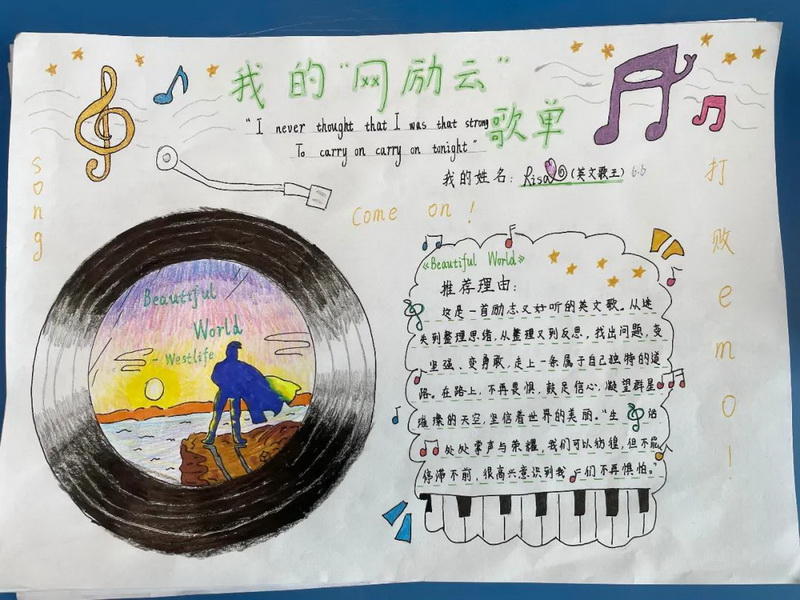 我的"网励云"
歌单
"I never thought that I was that strong
To carry on carry on tonight"
我的姓名：Risa（英文歌王）6.5
song
Come on！
打败emo！
Beautiful
World
- Westlife
《Beautiful World》
推荐理由：
这是一首励志又好听的英文歌。从迷
失到整理思绪，从整理又到反思，找出问题，变
坚强、变勇敢，走上一条属于自己独特的道
路。在路上，不再畏惧，鼓足信心，凝望群星
璀璨的天空，坚信着世界的美丽。"生活
处处掌声与荣耀，我们可以彷徨，但不能
停滞不前，很高兴意识到我们不再惧怕。"